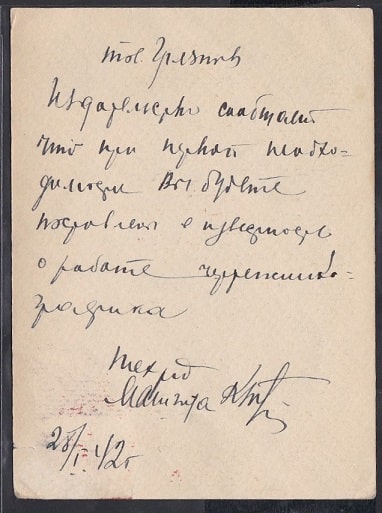 тов. Грязнов
Издательство сообщает
что при первой необхо-
димости Вы будете
поставлены в известность
о работе чертежника-
графика
техред
28/I 42г